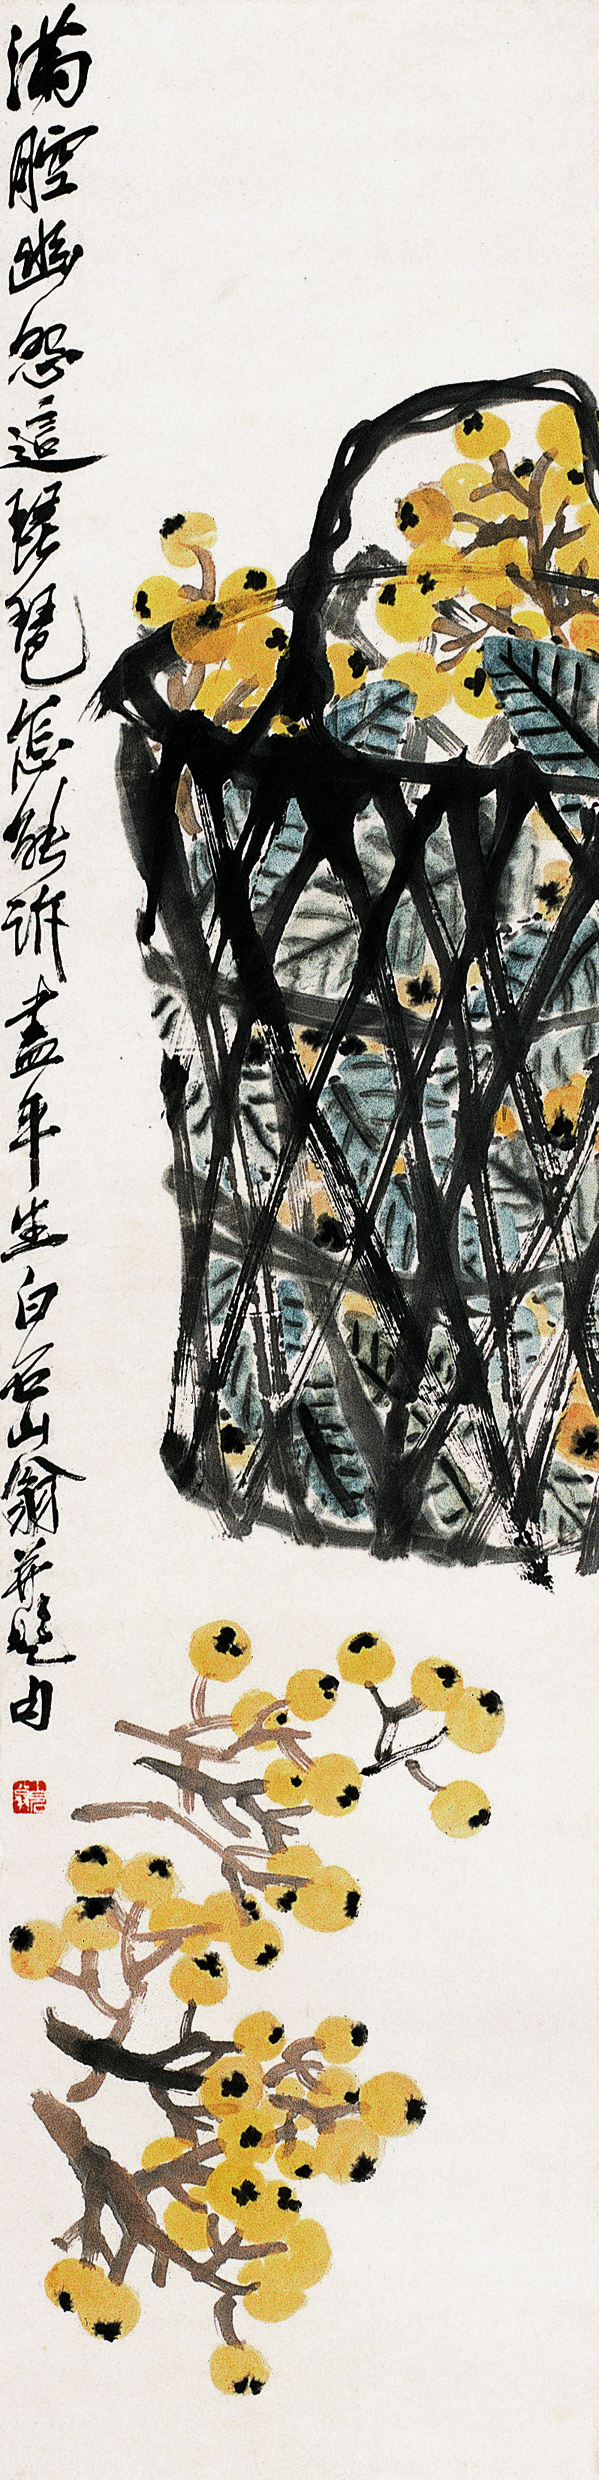 滿腔幽怨這琵琶怎能訴盡平生白石山翁并題句